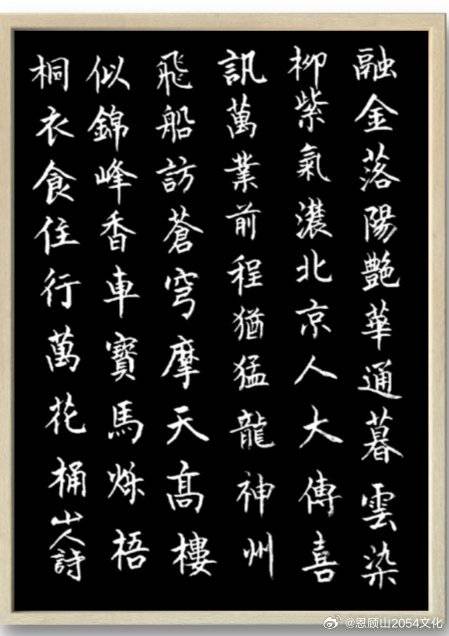 融金落陽艷華通暮雲染
柳紫氣濃北京人大傳喜
訊萬業前程猶猛龍神州
飛船訪蒼穹摩天高樓
似錦峰香車寶馬烁梧
桐衣食住行萬花桶山人詩
@恩顾山2054文化